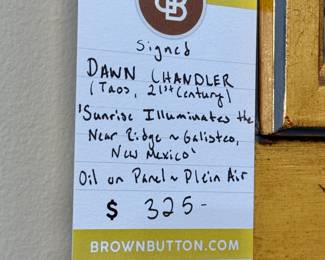 BB
Signed
DAWN CHANDLER
(Taos, 21st Century)
'Sunrise Illuminates the
Near Ridge ~ Galisteo,
New Mexico'
Oil on Panel ~ Plein Air
$ 325-
BROWNBUTTON.COM